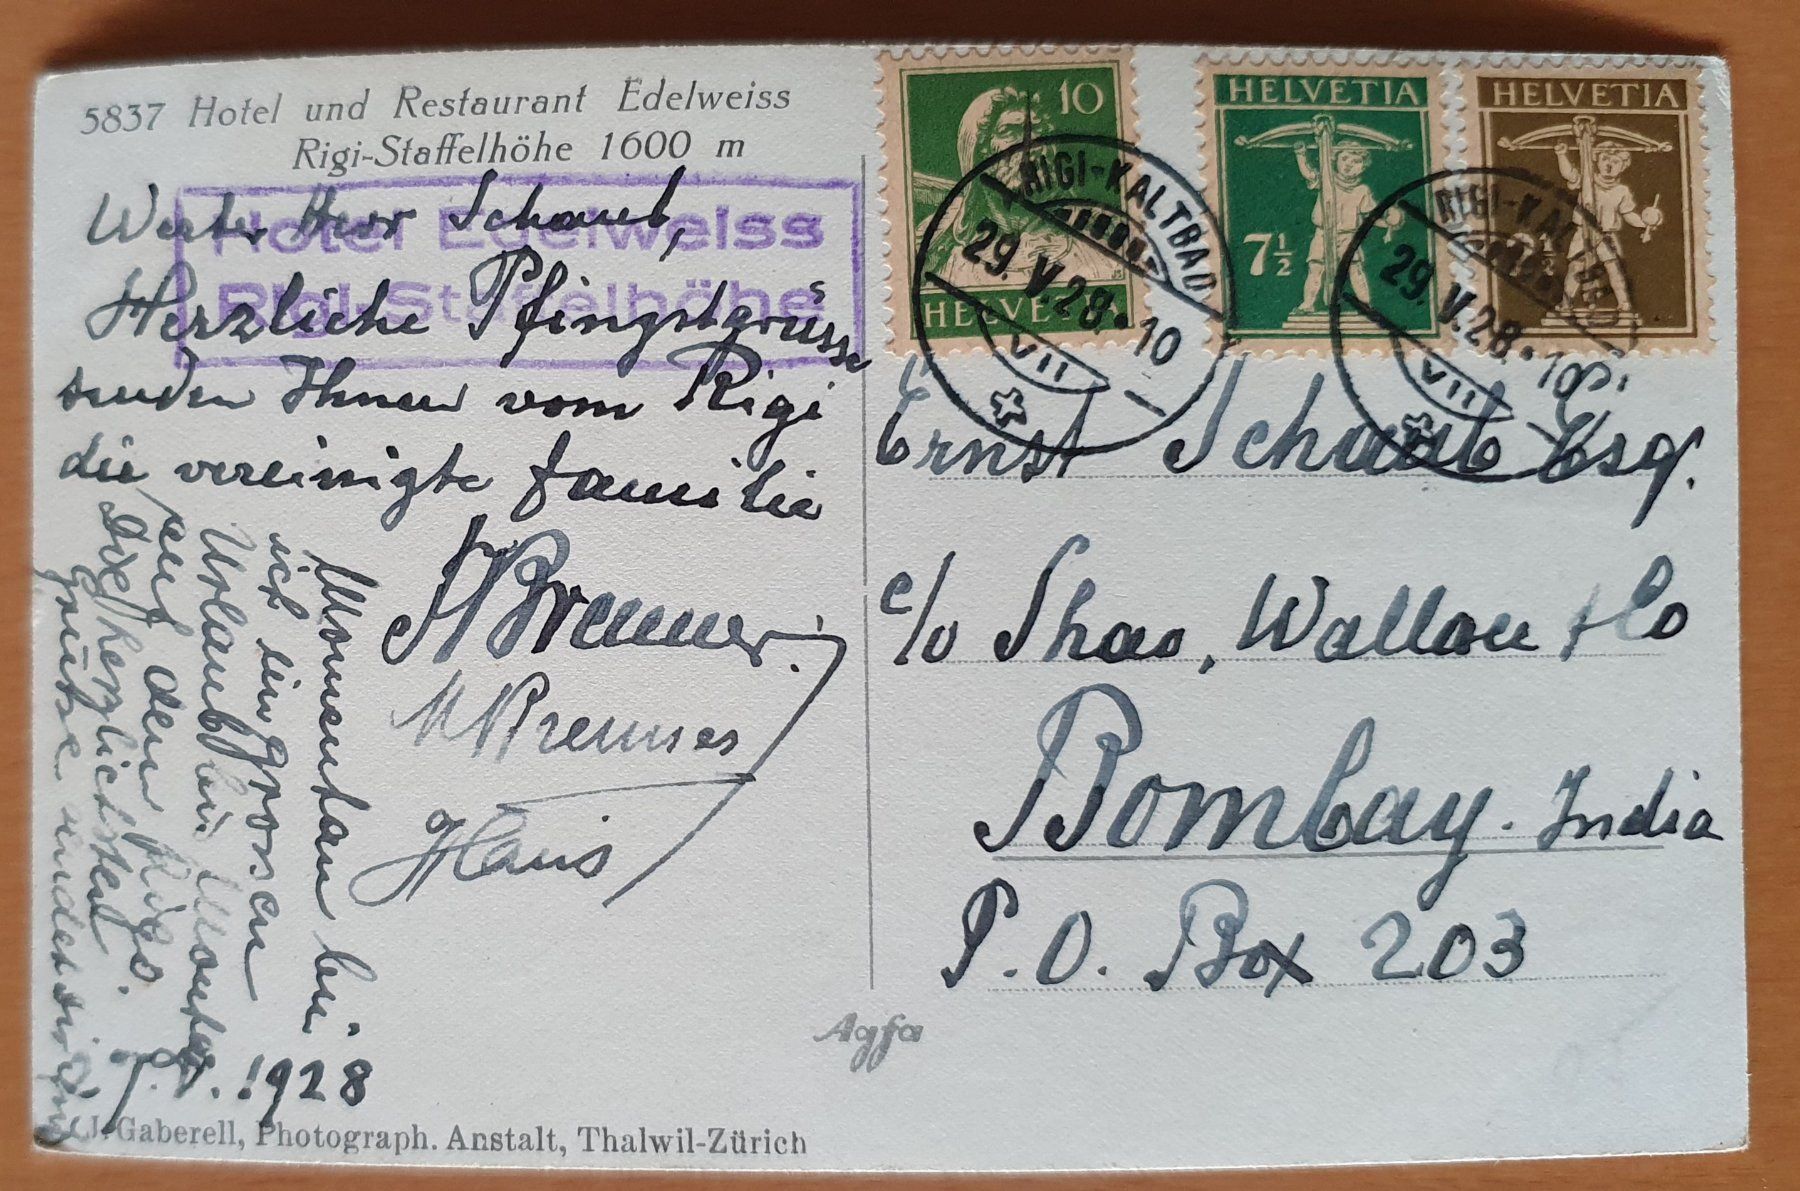 5837 Hotel und Restaurant Edelweiss
Rigi-Staffelhöhe 1600 m
Hotel Edelweiss
Rigi-Staffelhöhe
Werter Herr Schaub,
Herzliche Pfingstgrüsse
senden Ihnen vom Rigi
die vereinigte Familie
HBrenner.
MBrenner
Hans
Momentan bin
ich im grossen
Urlaub bin Montag
auf dem Rigi.
Die herzlichsten
Grüsse sendet dir
1928
J. Gaberell, Photograph. Anstalt, Thalwil-Zürich
10
HELVETIA
HELVETIA
7½
HELVETIA
2½
RIGI-KALTBAD
29.V.28.10
VII
RIGI-KALTBAD
29.V.28.10
VII
Ernst Schaub Esq.
c/o Shao, Wallace & Co
Bombay. India
P.O. Box 203
Agfa